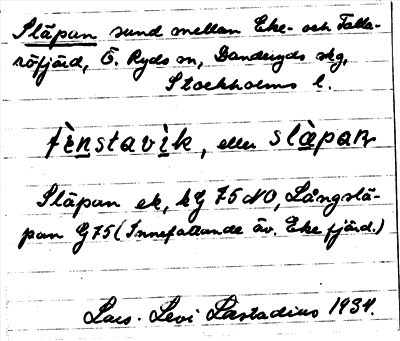 Släpan sund mellan Eke- och Talla-
röfjärd, Ö. Ryds sn, Danderyds skg,
Stockholms l.
fènstavìk, eller slàpan
Släpan ek, kG 75 NO, Långslä-
pan G 75 (Innefattande äv. Eke fjärd.)
Lars. Levi Læstadius 1934.